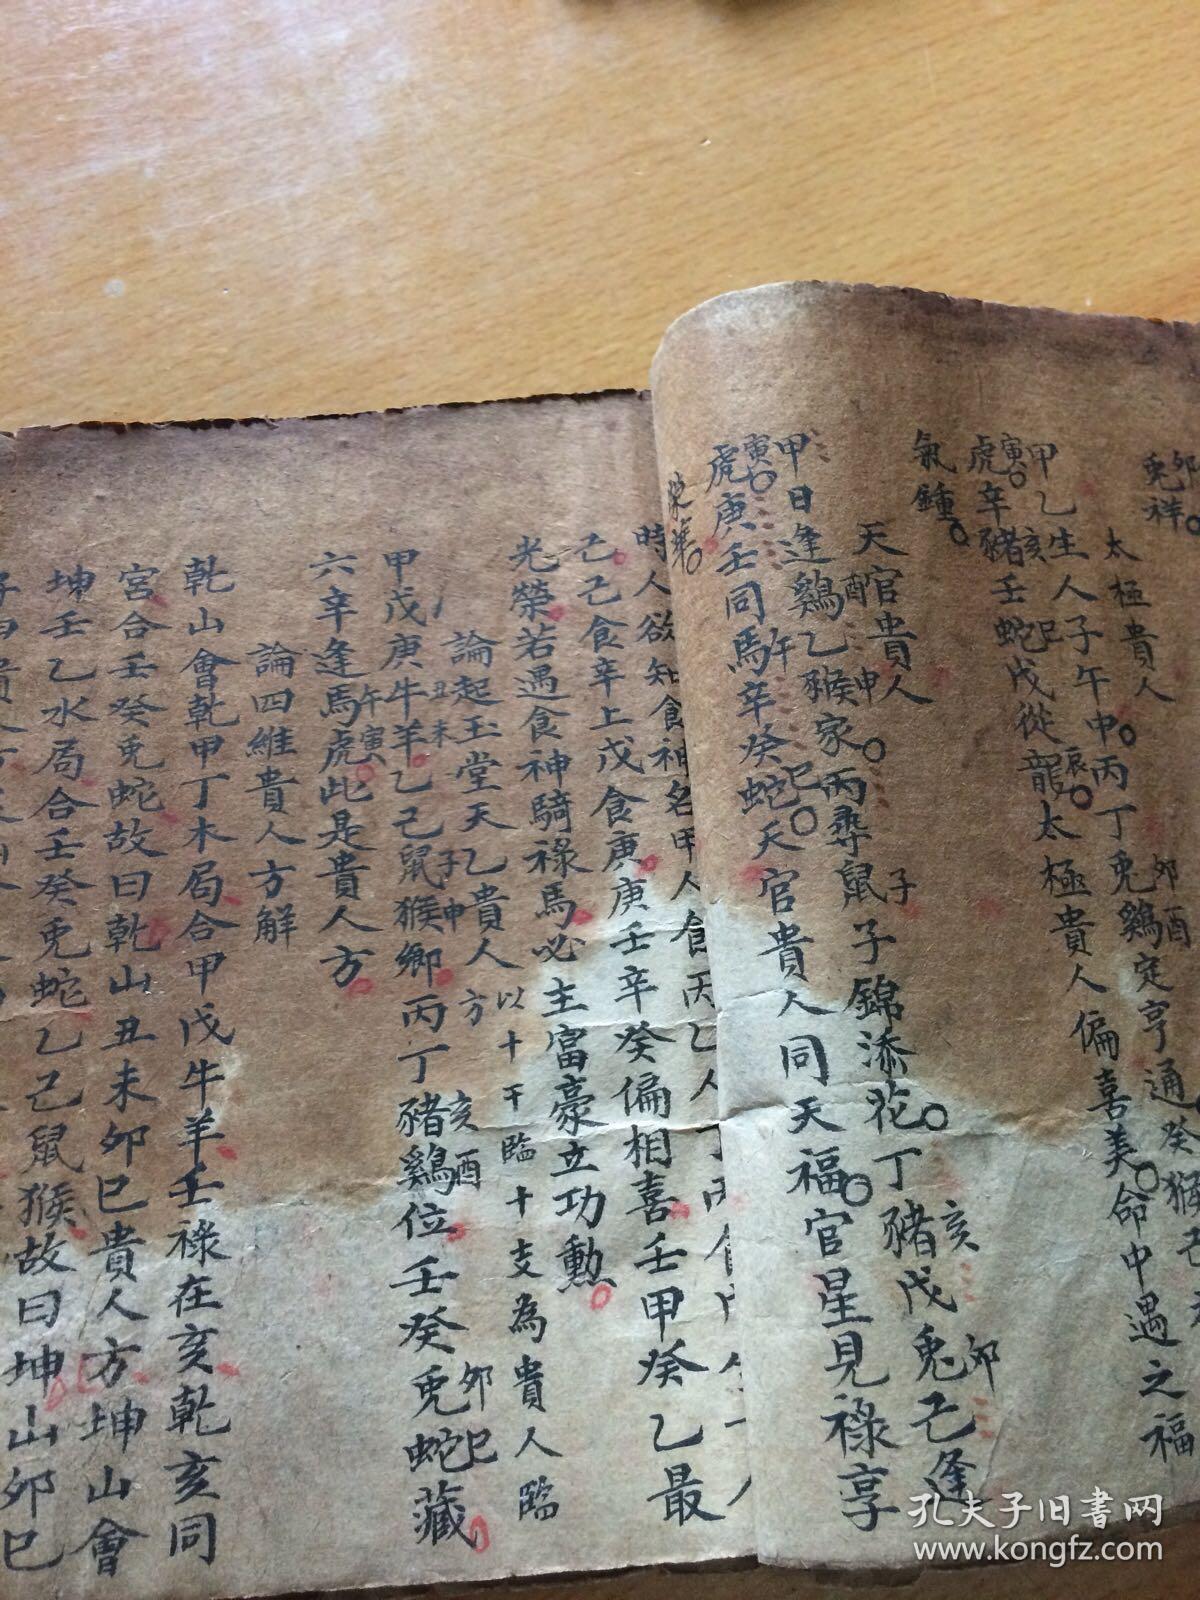 卯
兔祥
太極貴人
甲乙生人子午申丙丁兔鷄定亨通癸猴
卯酉
寅
亥
巳
辰
虎辛豬壬蛇戊從龍太極貴人偏喜美命中遇之福
氣鍾
天官貴人
甲日逢鷄乙猴家丙尋鼠子錦添花丁豬戊兔己逢
酉
申
子
亥
卯
寅
午
巳
虎庚壬同馬辛癸蛇天官貴人同天福官星見祿享
榮華
時人欲知食神名甲人食丙乙人
己己食辛上戊食庚庚壬辛癸偏相喜壬甲癸乙最
光榮若遇食神騎祿馬必主富豪立功勳
論起玉堂天乙貴人方以十干臨十支為貴人臨
甲戊庚牛羊乙己鼠猴鄉丙丁豬鷄位壬癸兔蛇藏
丑未
子申
亥酉
卯巳
午寅
六辛逢馬虎此是貴人方
論四維貴人方解
乾山會乾甲丁木局合甲戊牛羊壬祿在亥乾亥同
宮合壬癸兔蛇故曰乾山丑未卯巳貴人方坤山會
坤壬乙水局合壬癸兔蛇乙己鼠猴故曰坤山卯巳
孔夫子旧书网
www.kongfz.com